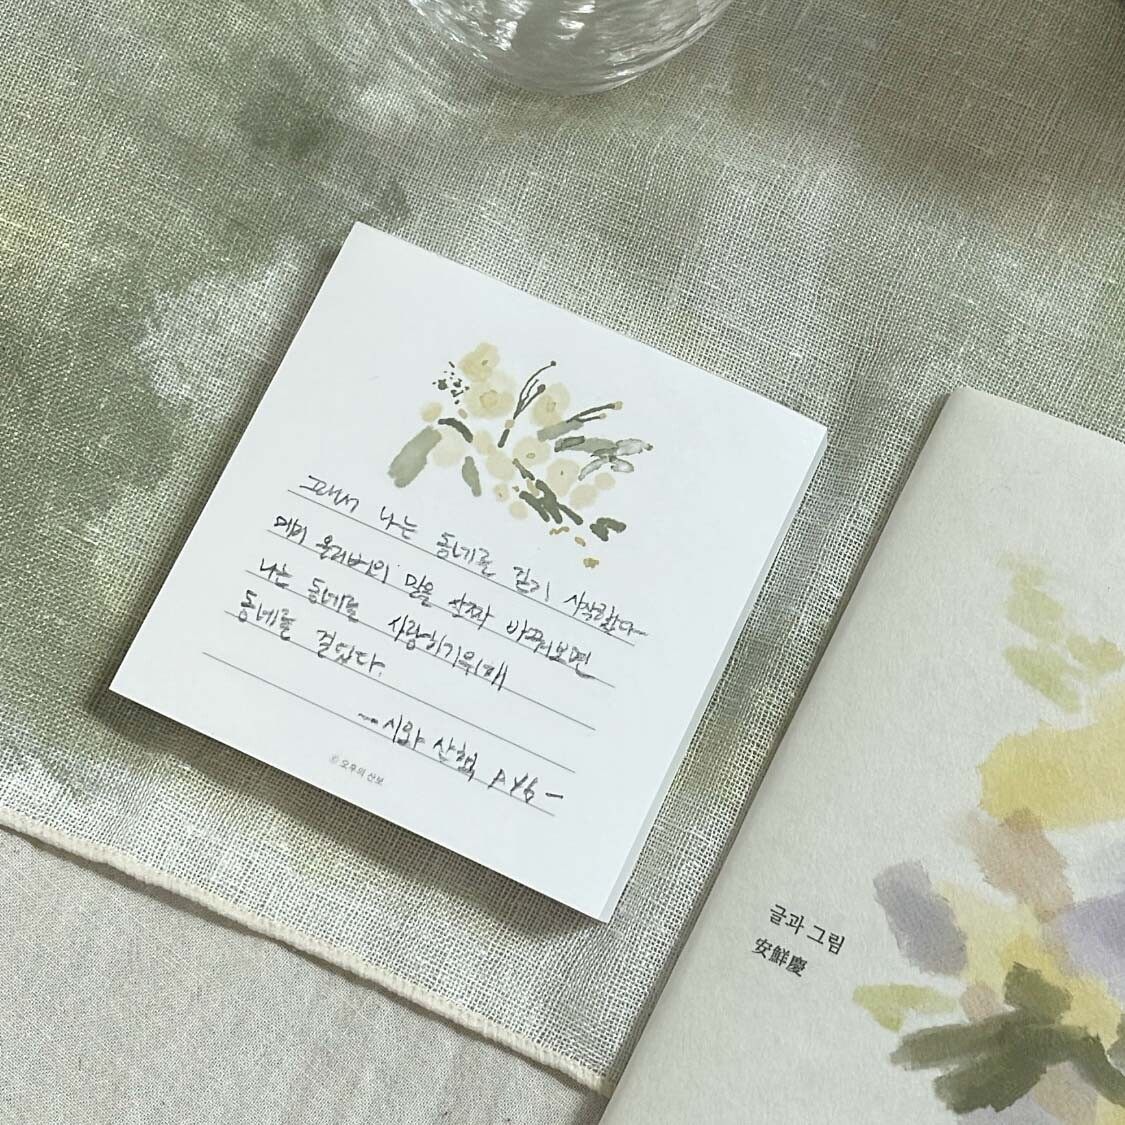 그래서 나는 동네를 걷기 시작했다
메리 올리버의 말을 살짝 바꿔보면
나는 동네를 사랑하기위해
동네를 걸었다.
- 시와 산책 P46 -
© 오후의 산보
글과 그림
安鮮慶